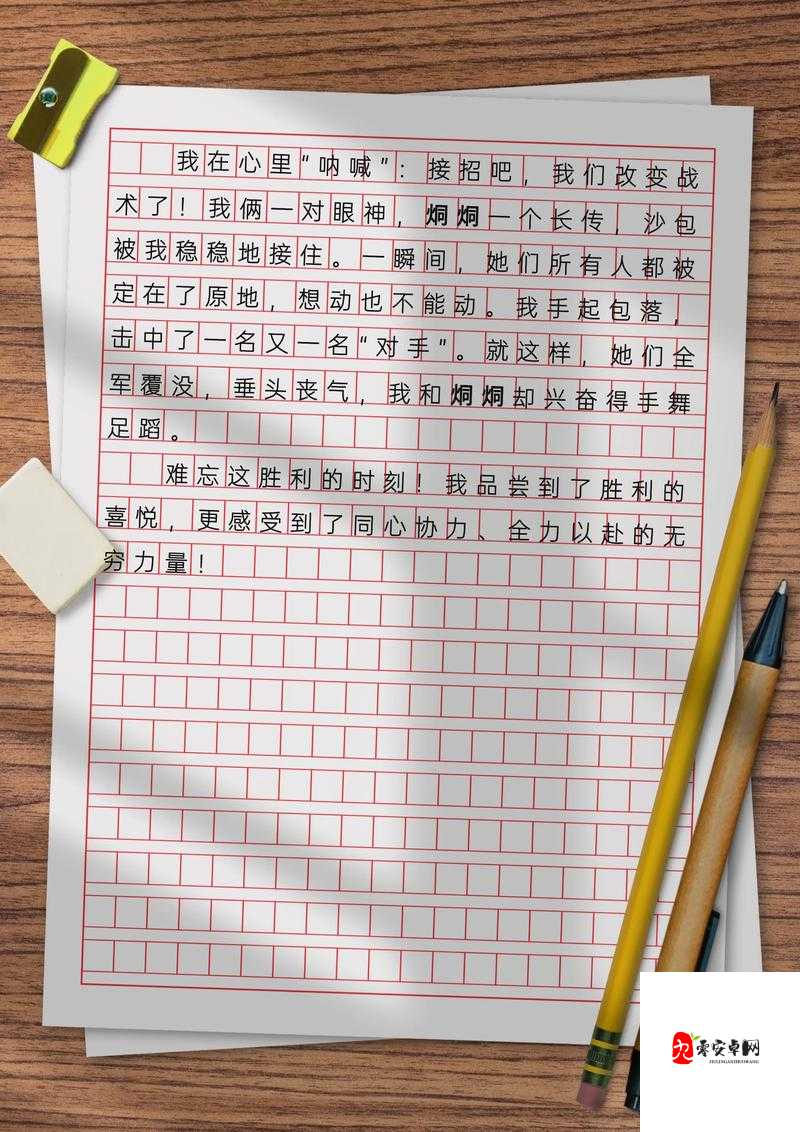 我在心里“呐喊”：接招吧，我们改变战
术了！我俩一对眼神，炯炯一个长传，沙包
被我稳稳地接住。一瞬间，她们所有人都被
定在了原地，想动也不能动。我手起包落，
击中了一名又一名“对手”。就这样，她们全
军覆没，垂头丧气，我和炯炯却兴奋得手舞
足蹈。
难忘这胜利的时刻！我品尝到了胜利的
喜悦，更感受到了同心协力、全力以赴的无
穷力量！
九零安卓网
JIULINGANZHUOWANG